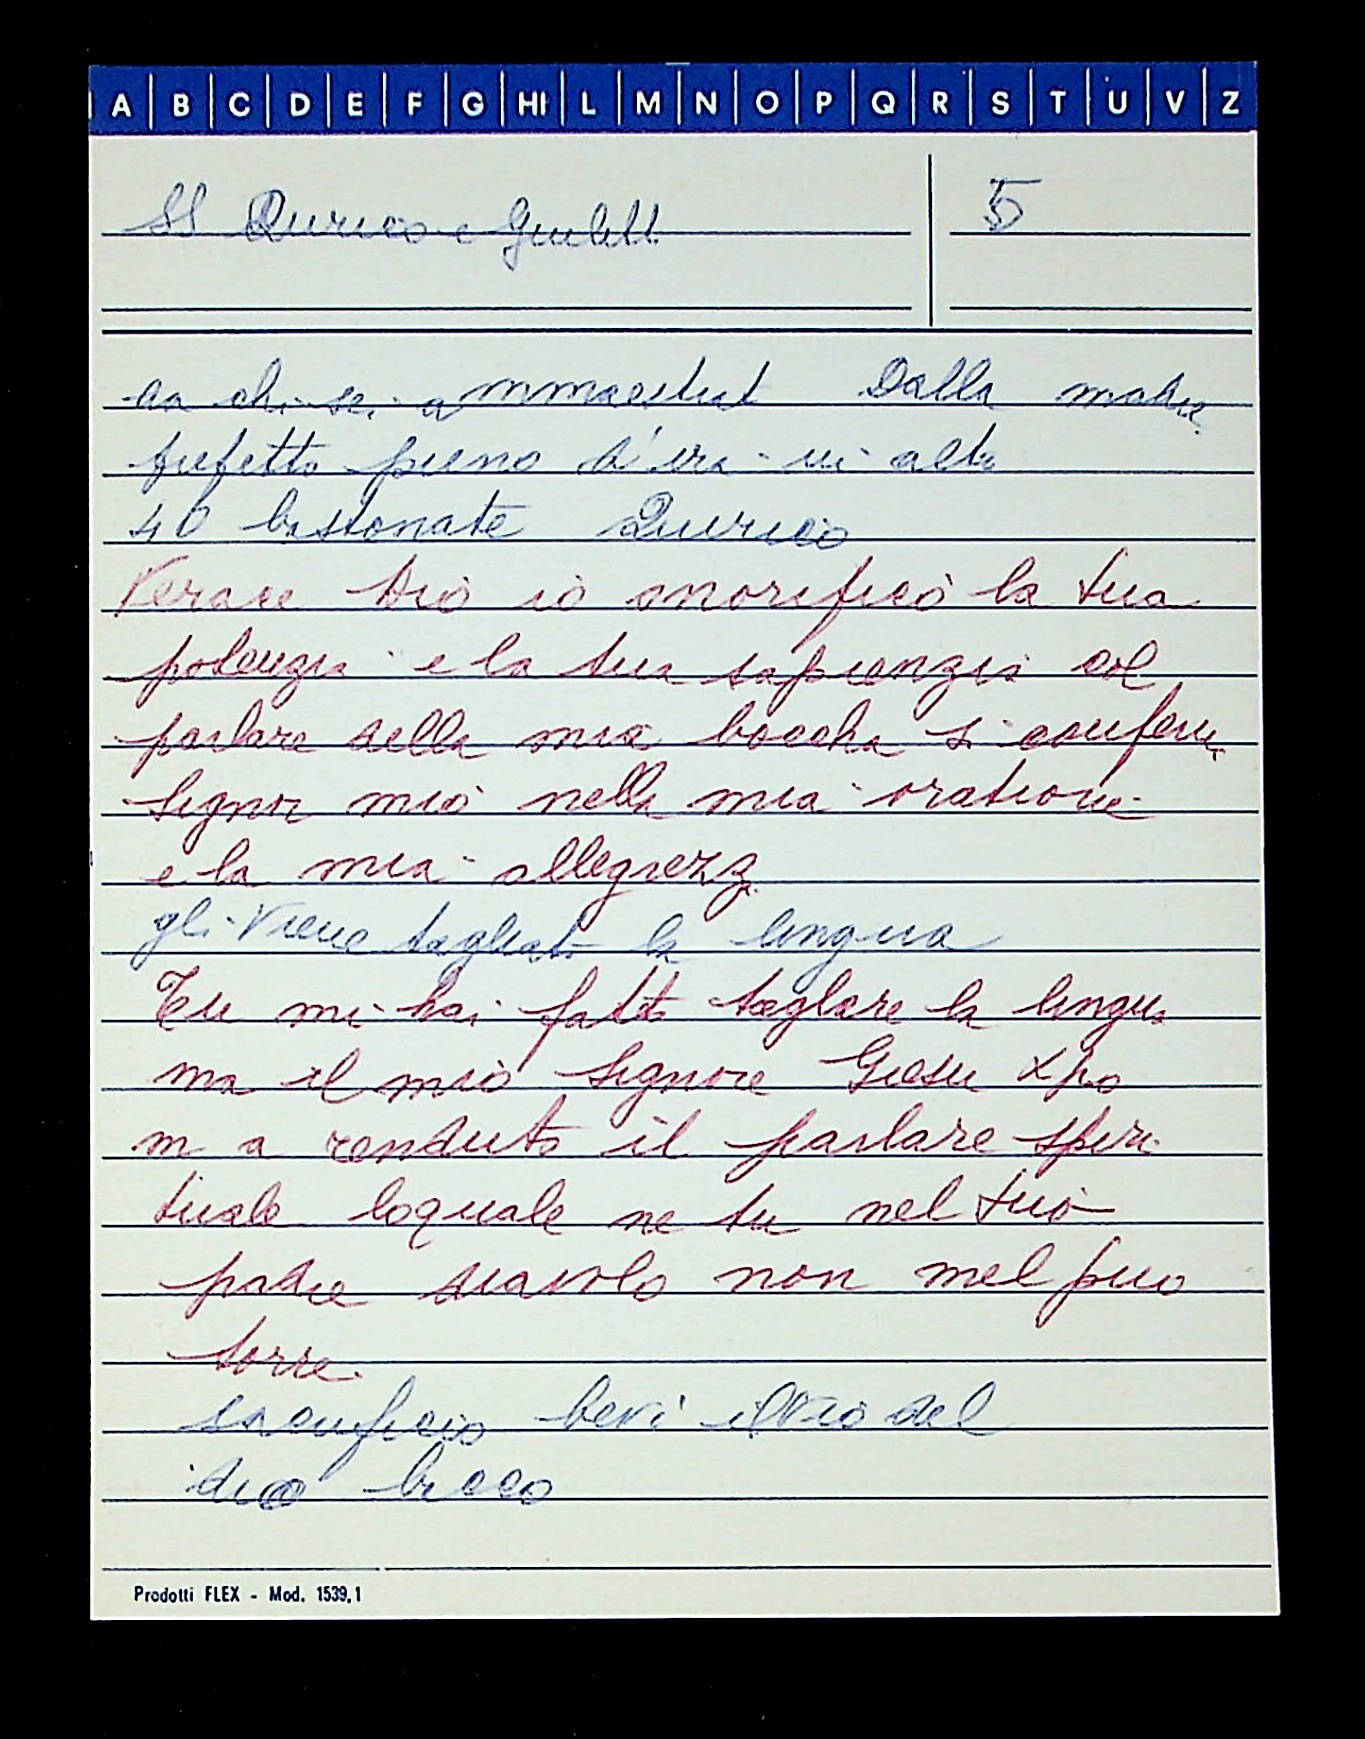 A B C D E F G HI L M N O P Q R S T U V Z
SS Quirico e Giulitt.
5
da chi sei ammaestrat Dalla madre
prefetto pieno d'ira vi altr
40 bastonate Quirico
Verace Dio io onorifico la tua
potenzia e la tua sapienzia col
parlare della mia boccha si conferm
Signor mio nella mia oratione
e la mia allegrezz
gli viene tagliat la lingua
Tu mi hai fatto taglare la lingua
ma il mio Signore Giesu xpo
m a renduto il parlare spiri
tuale loquale ne tu nel tuo
padre diavolo non mel puo
torre.
sacrificio bevi il vio del
dio bicco
Prodotti FLEX - Mod. 1539,1